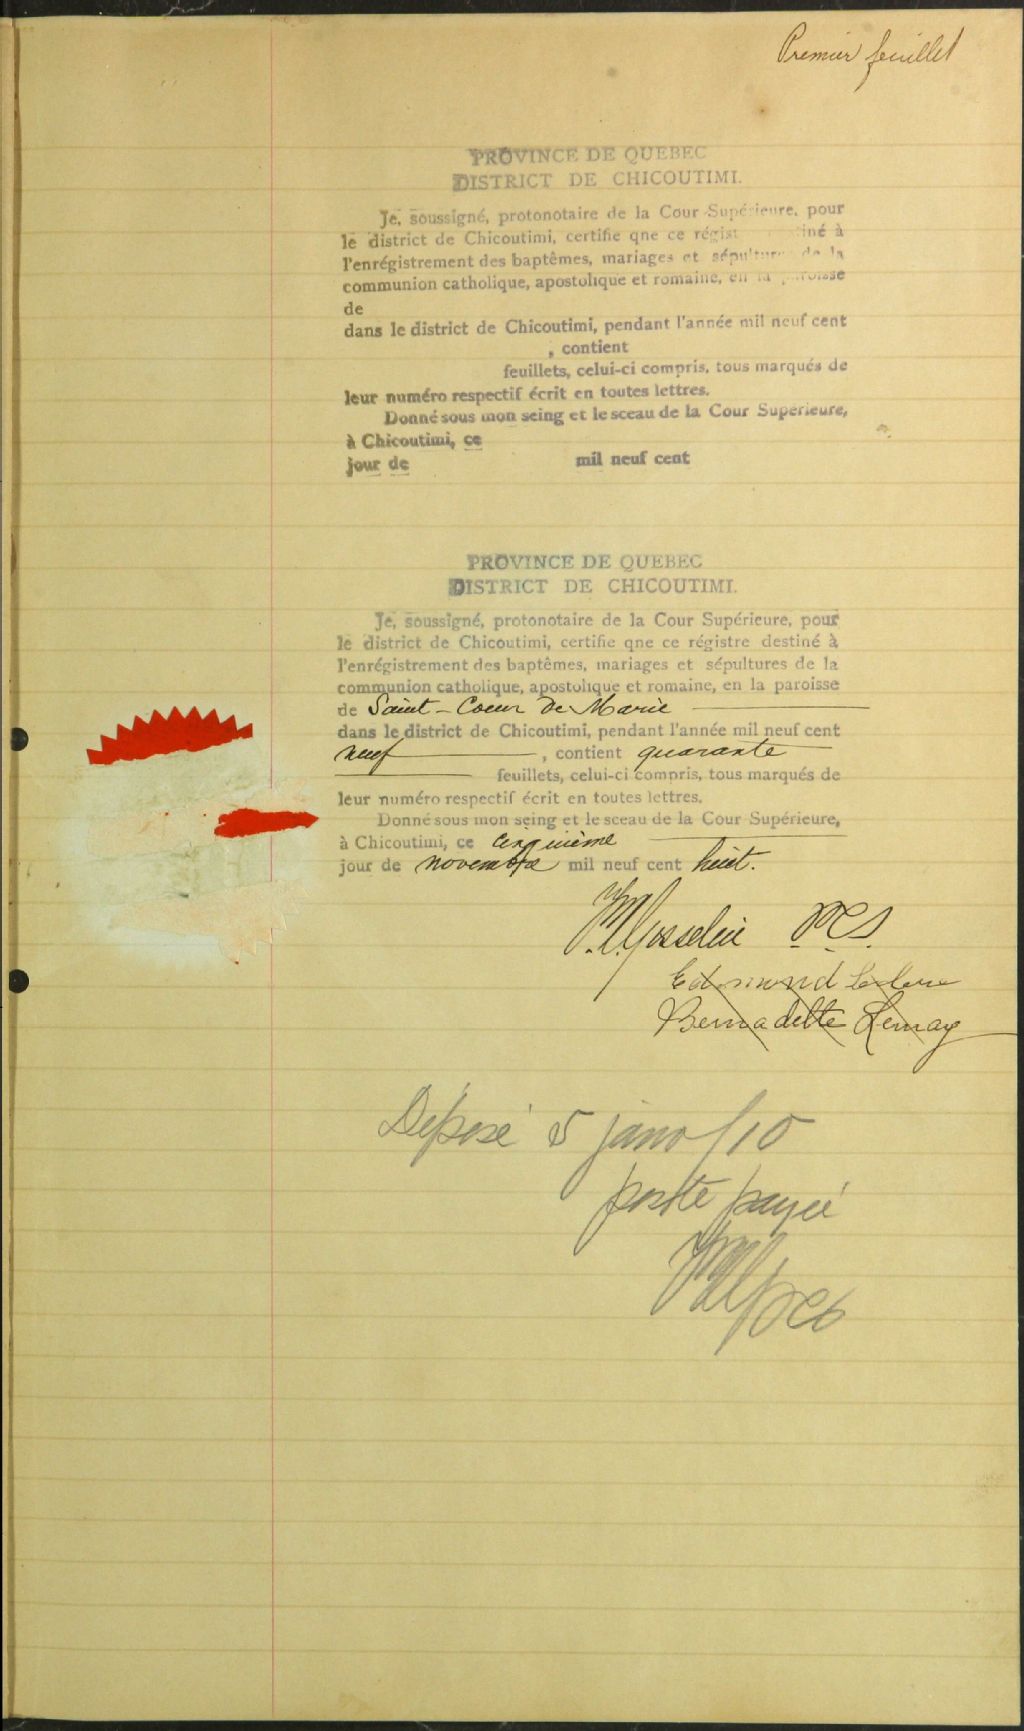 Premier feuillet
PROVINCE DE QUEBEC
DISTRICT DE CHICOUTIMI.
Je, soussigné, protonotaire de la Cour Supérieure, pour
le district de Chicoutimi, certifie qne ce régist iné à
l'enrégistrement des baptêmes, mariages et sépultures de la
communion catholique, apostolique et romaine, en la paroisse
de
dans le district de Chicoutimi, pendant l'année mil neuf cent
, contient
feuillets, celui-ci compris, tous marqués de
leur numéro respectif écrit en toutes lettres.
Donné sous mon seing et le sceau de la Cour Superieure,
à Chicoutimi, ce
jour de mil neuf cent
PROVINCE DE QUEBEC
DISTRICT DE CHICOUTIMI.
Je, soussigné, protonotaire de la Cour Supérieure, pour
le district de Chicoutimi, certifie qne ce régistre destiné à
l'enrégistrement des baptêmes, mariages et sépultures de la
communion catholique, apostolique et romaine, en la paroisse
de Saint-Coeur de Marie
dans le district de Chicoutimi, pendant l'année mil neuf cent
neuf , contient quarante
feuillets, celui-ci compris, tous marqués de
leur numéro respectif écrit en toutes lettres.
Donné sous mon seing et le sceau de la Cour Supérieure,
à Chicoutimi, ce cinquième
jour de novembre mil neuf cent huit.
Gosselin P.C.S.
Edmond Leclerc
Bernadette Lemay
Déposé 5 janv/10
poste payée